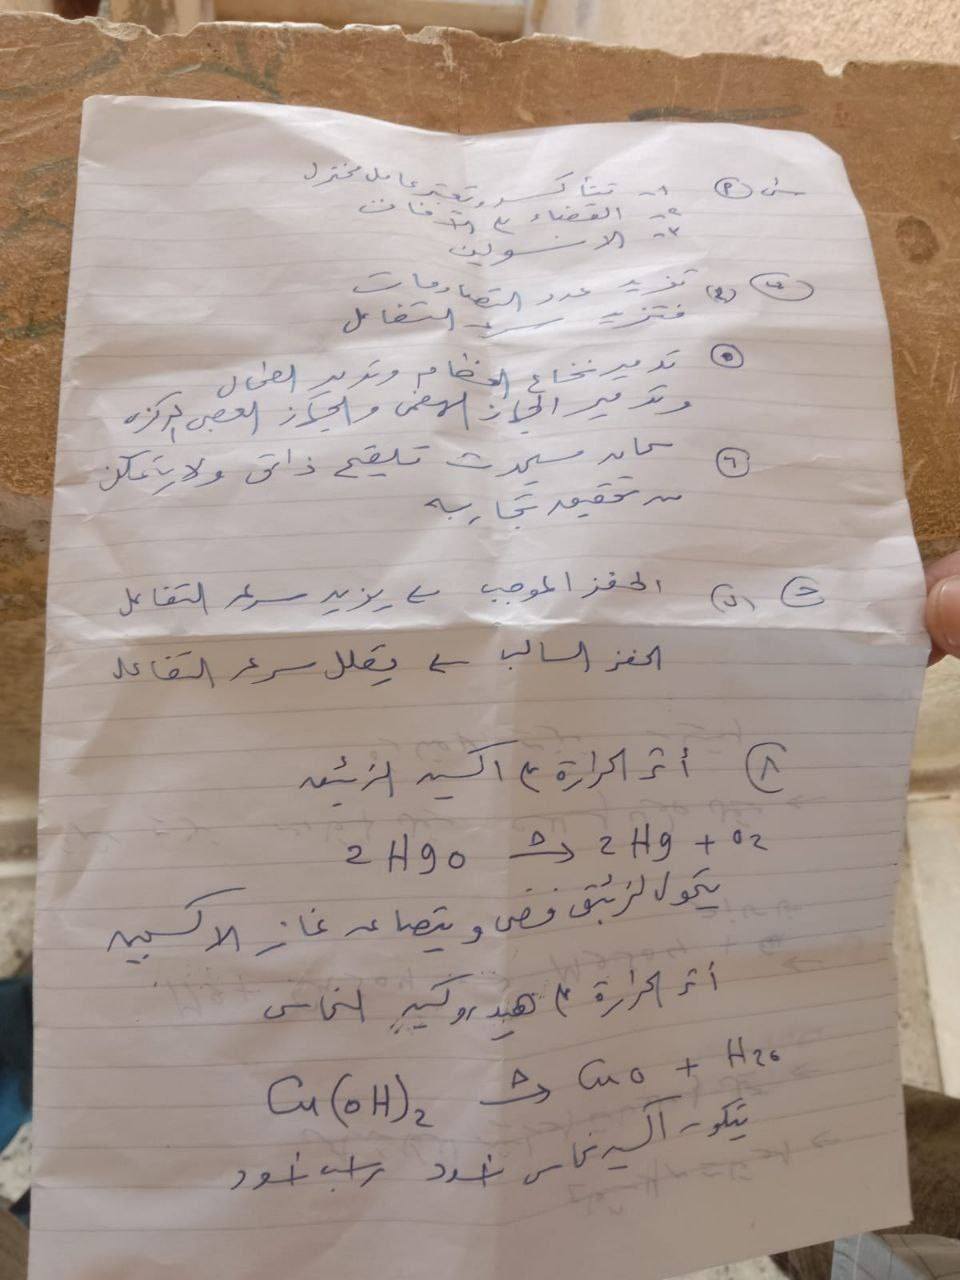 ١- تتأكسد وتعتبر عامل مختزل
٢- القضاء على الآفات
٣- الانسولين
تزيد عدد التصادمات
فتزيد سرعة التفاعل
تدمير نخاع العظام وتدمير الطحال
وتدمير الجهاز الهضمي والجهاز العصبي المركزي
٦ سيحدث تلقيح ذاتي ولا يتمكن
من تحقيق تجاربه
الحفز الموجب يزيد سرعة التفاعل
الحفز السالب يقلل سرعة التفاعل
٨ أثر الحرارة على اكسيد الزئبق
2HgO → 2Hg + O2
يتحول لزئبق فضي ويتصاعد غاز الاكسجين
أثر الحرارة على هيدروكسيد النحاس
Cu(OH)2 → CuO + H2O
يتكون أكسيد نحاس أسود راسب أسود